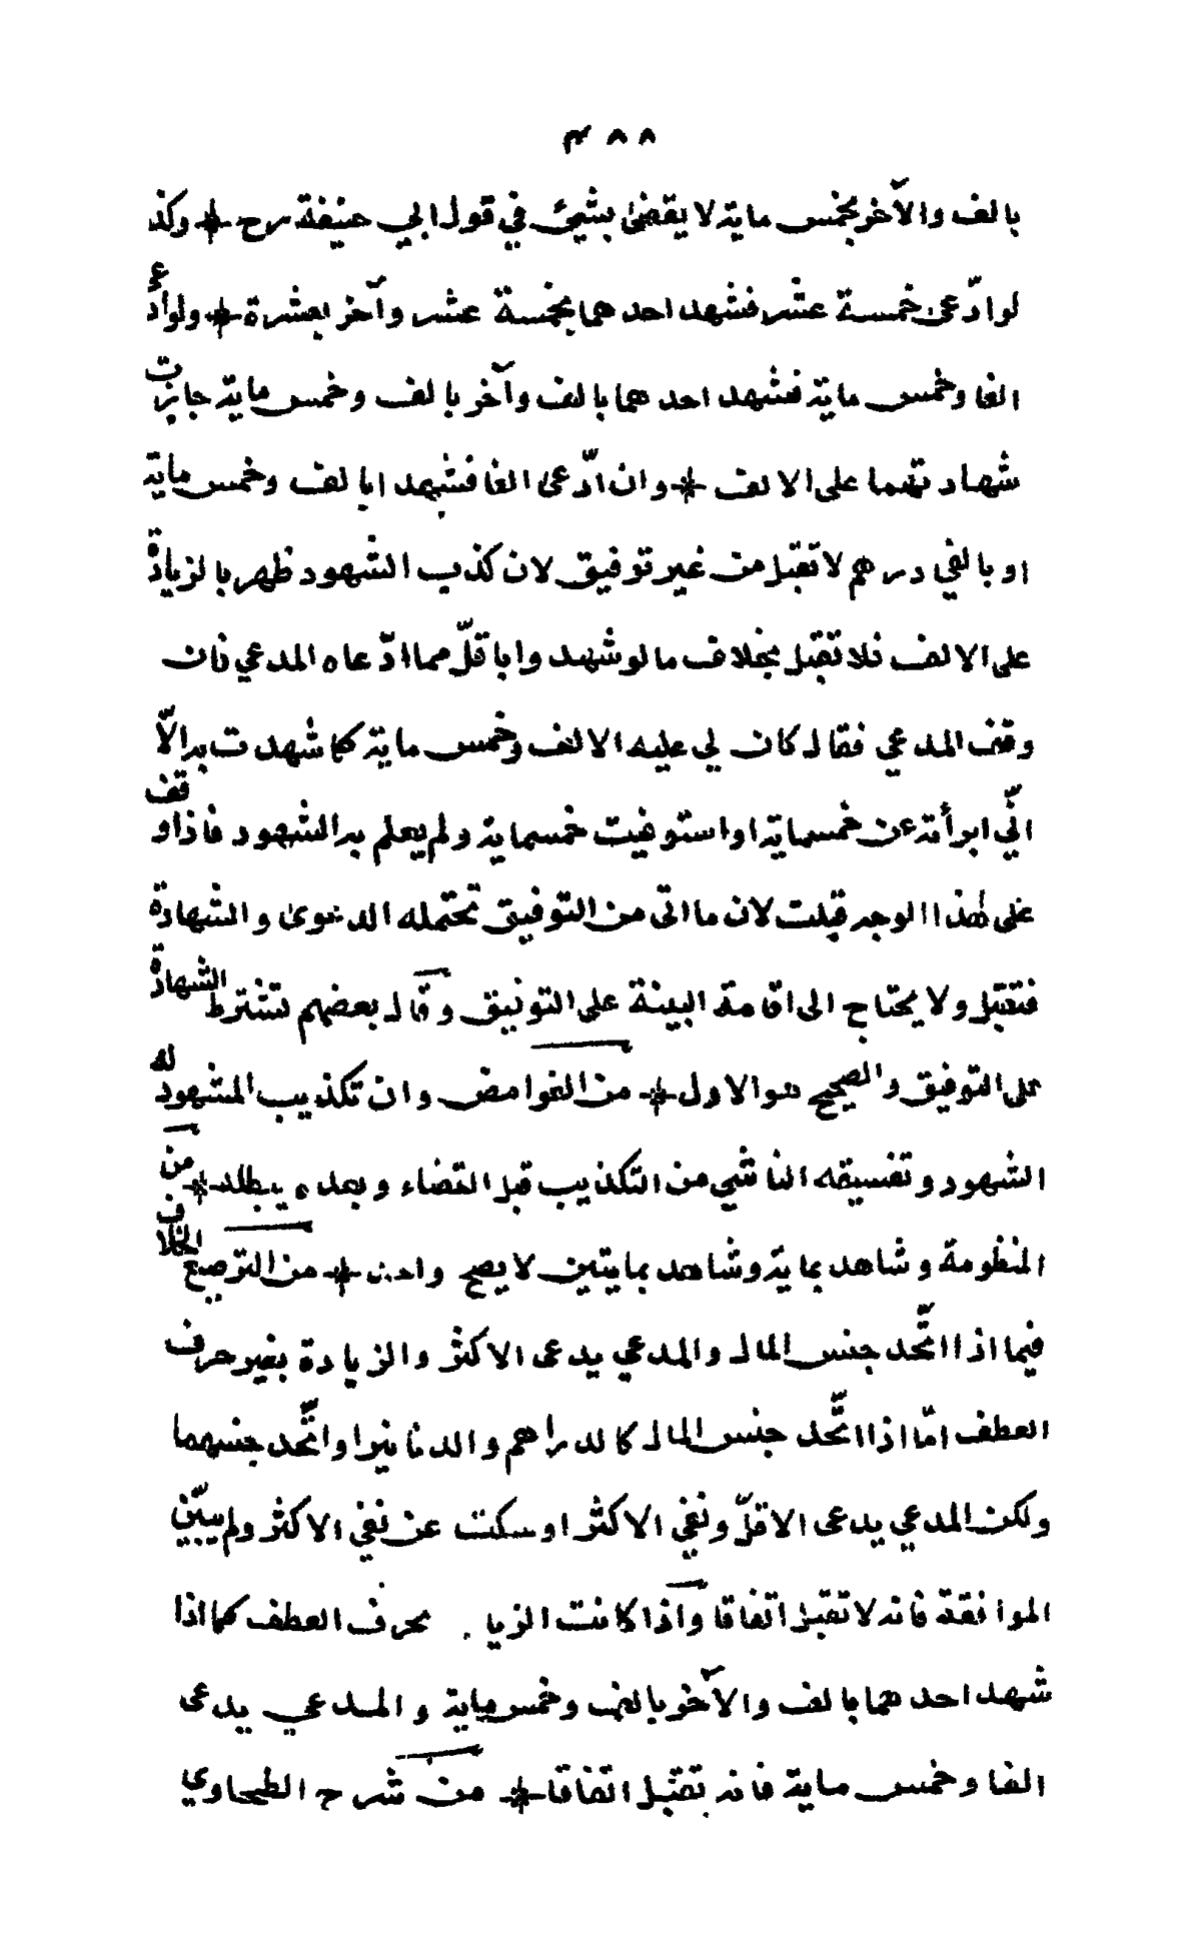 ٣٨٨
بالف والآخر بخمس ماية لا يقضى بشيئ في قول ابي حنيفة رح * وكذ
لو ادّعى خمسة عشر فشهد احدهما بخمسة عشر وآخر بعشرة * ولو ادّعى
الفا وخمس ماية فشهد احدهما بالف وآخر بالف وخمس ماية جازت
شهادتهما على الالف * وان ادّعى الفا فشهدا بالف وخمس ماية
او بالفي درهم لا تقبل من غير توفيق لان كذب الشهود ظهر بالزيادة
على الالف فلا تقبل بخلاف ما لو شهدوا باقلّ مما ادّعاه المدعي فان
وفق المدعي فقال كان لي عليه الالف وخمس ماية كما شهدت به الّا
انّي ابرأته عن خمسماية او استوفيت خمسماية ولم يعلم به الشهود فاذا وقف
على هذا الوجه قبلت لان ما اتى من التوفيق تحتمله الدعوى والشهادة
فتقبل ولا يحتاج الى اقامة البينة على التوفيق وقال بعضهم تشترط الشهادة
على التوفيق والصحيح هو الاول * من الغوامض وان تكذيب المشهود له
الشهود وتفسيقه الناشي من التكذيب قبل القضاء وبعده يبطله * من
المنظومة وشاهد بماية وشاهد بمايتين لا يصح واحد * من الترصيع الخلاف
فيما اذا اتّحد جنس المال والمدعي يدعى الاكثر والزيادة بغير حرف
العطف امّا اذا اتّحد جنس المال كالدراهم والدنانير او اتّحد جنسهما
ولكن المدعي يدعى الاقلّ ونفي الاكثر او سكت عن نفي الاكثر ولم يبيّن
الموافقة فانه لا تقبل اتفاقا واذا كانت الزيا. بحرف العطف كما اذا
شهد احدهما بالف والآخر بالف وخمس ماية والمدعي يدعى
الفا وخمس ماية فانه تقبل اتفاقا * من شرح الطحاوي